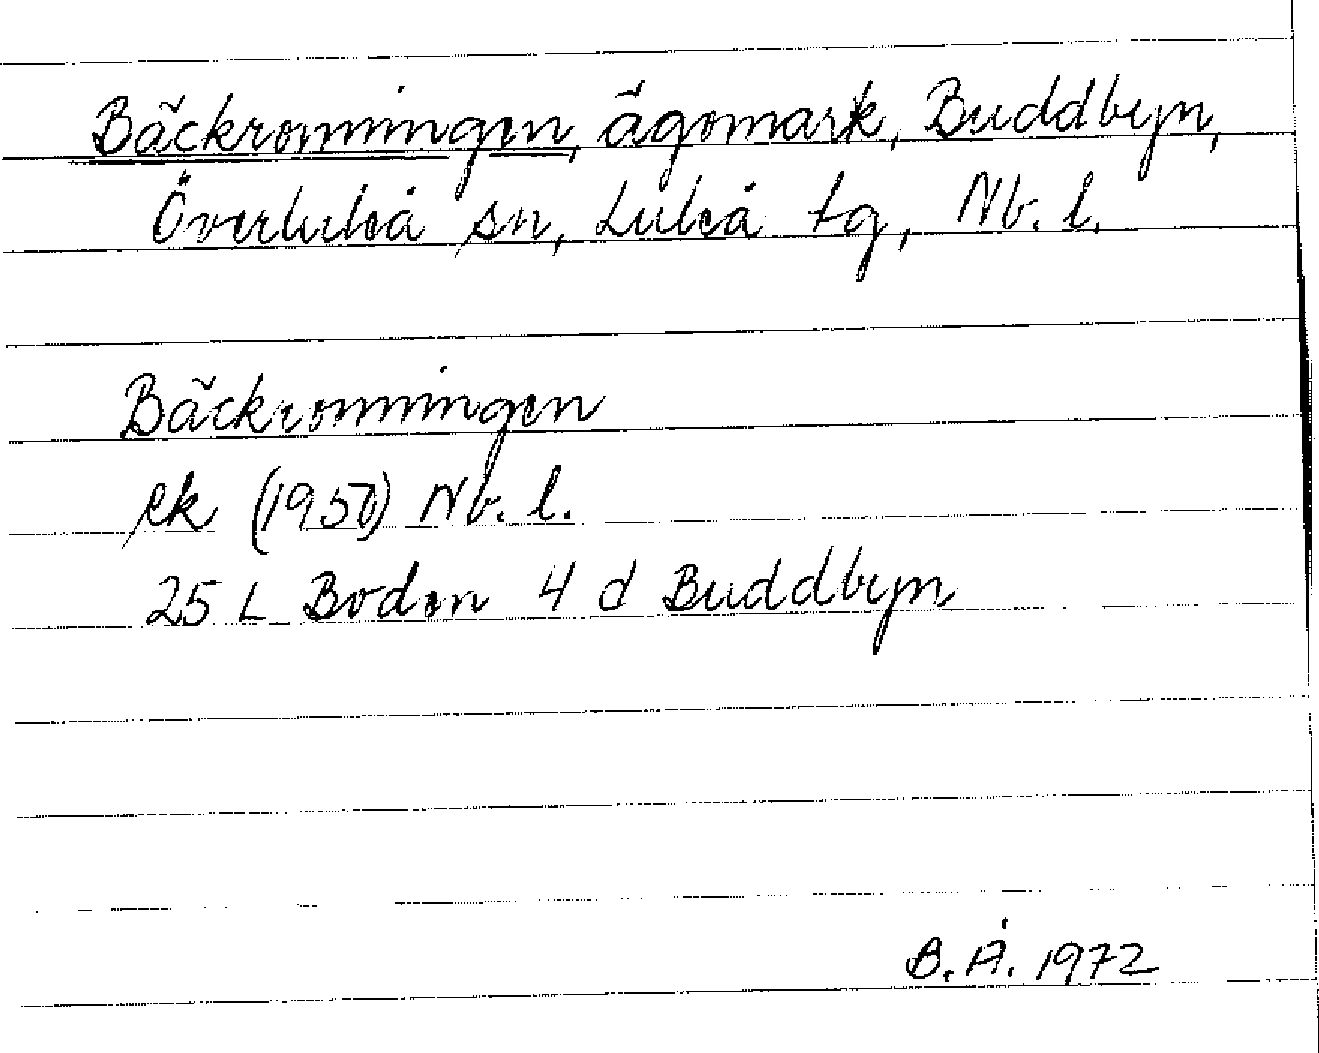 Bäckromningen, ägomark, Buddbyn,
Överluleå sn, Luleå tg, Nb. l.
Bäckromningen
rk (1950) Nb. l.
25 L Boden 4 d Buddbyn
B.Å. 1972